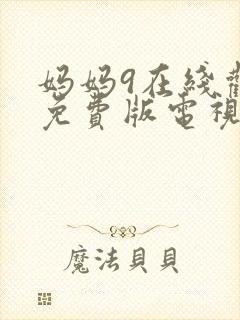 妈妈9在线
免費版電視
魔法貝貝